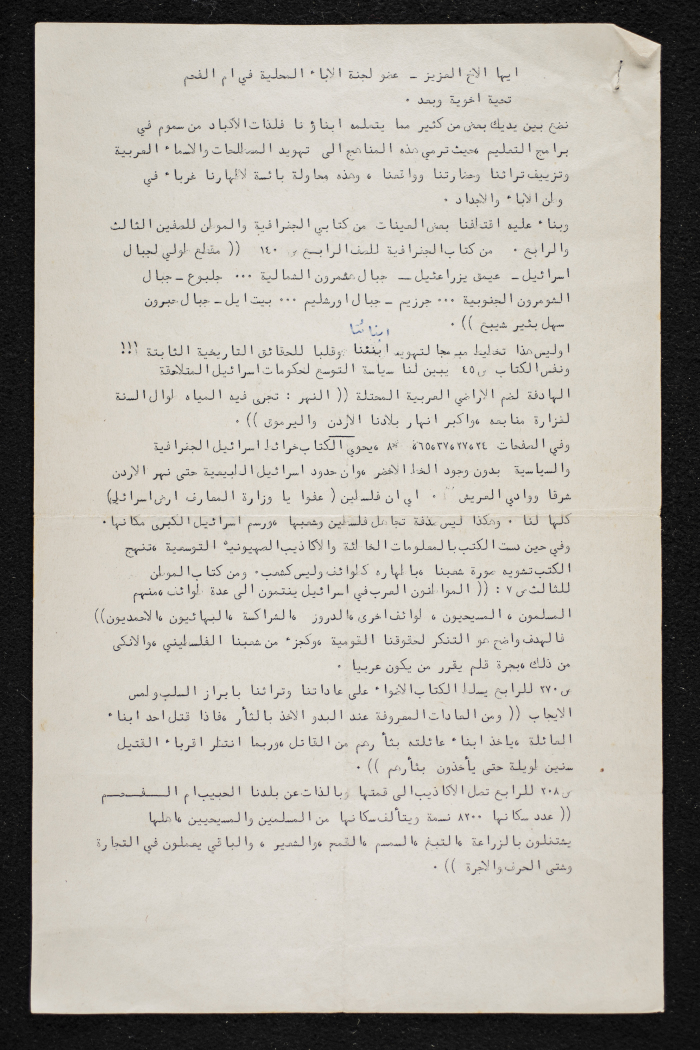 ايها الاخ العزيز ـ عضو لجنة الاباء المحلية في ام الفحم
تحية اخوية وبعد .
نضع بين يديك بعض من كثير مما يتعلمه ابناؤنا فلذات الاكباد من سموم في
برامج التعليم ، حيث ترمي هذه المناهج الى تهويد المصطلحات والاسماء العربية
وتزييف تراثنا وحضارتنا وواقعنا ، وهذه محاولة بائسة لاظهارنا غرباء في
وطن الاباء والاجداد .
وبناء عليه اقتطفنا بعض العينات من كتابي الجغرافية والموطن للصفين الثالث
والرابع . من كتاب الجغرافية للصف الرابع ص ١٤٠ (( مقطع طولي لجبال
اسرائيل ـ عيمق يزراعئيل ـ جبال شمرون الشمالية ... جلبوع ـ جبال
الشومرون الجنوبية ... جرزيم ـ جبال اورشليم ... بيت ايل ـ جبال حبرون
سهل بئير شيبع )) .
ابنائنا
اوليس هذا تخطيط مبرمجا لتهويد ابنئنا وقلبا للحقائق التاريخية الثابتة !!!
ونفس الكتاب ص ٤٥ يبين لنا سياسة التوسع لحكومات اسرائيل المتلاحقة
الهادفة لضم الاراضي العربية المحتلة (( النهر : تجرى فيه المياه طوال السنة
لغزارة منابعه ، واكبر انهار بلادنا الاردن واليرموق )) .
وفي الصفحات ٢٤، ٢٧، ٣٧، ٦٥، ٨٠ يحوي الكتاب خرائط اسرائيل الجغرافية
والسياسية بدون وجود الخط الاخضر ، وان حدود اسرائيل الطبيعية حتى نهر الاردن
شرقا ووادي العريش . اي ان فلسطين ( عفوا يا وزارة المعارف ارض اسرائيل)
كلها لنا . وهكذا ليس صدفة تجاهل فلسطين وشعبها ، ورسم اسرائيل الكبرى مكانها .
وفي حين دست الكتب بالمعلومات الخاطئة والاكاذيب الصهيونية التوسعية ، تنهج
الكتب تشويه صورة شعبنا ، باظهاره كطوائف وليس كشعب . ومن كتاب الموطن
للثالث ص ٧ : (( المواطنون العرب في اسرائيل ينتمون الى عدة طوائف ، منهم
المسلمون ، المسيحيون ، طوائف اخرى ، الدروز ، الشراكسة ، البهائيون ، الاحمديون))
فالهدف واضح هو التنكر لحقوقنا القومية ، وكجزء من شعبنا الفلسطيني ، والانكى
من ذلك ، بجرة قلم يقرر من يكون عربيا .
ص ٢٧٠ للرابع يسلط الكتاب الاضواء على عاداتنا وتراثنا بابراز السلب وطمس
الايجاب (( ومن العادات المعروفة عند البدو الاخذ بالثأر ، فاذا قتل احد ابناء
العائلة ، ياخذ ابناء عائلته بثأرهم من القاتل ، وربما انتظر اقرباء القتيل
سنين طويلة حتى يأخذون بثأرهم )) .
ص ٢٠٨ للرابع تصل الاكاذيب الى قمتها وبالذات عن بلدنا الحبيب ام الفحم
(( عدد سكانها ٨٢٠٠ نسمة ويتألف سكانها من المسلمين والمسيحيين ، اهلها
يشتغلون بالزراعة ، التبغ ، السمسم ، القمح ، والشعير ، والباقي يعملون في التجارة
وشتى الحرف والاجرة )) .